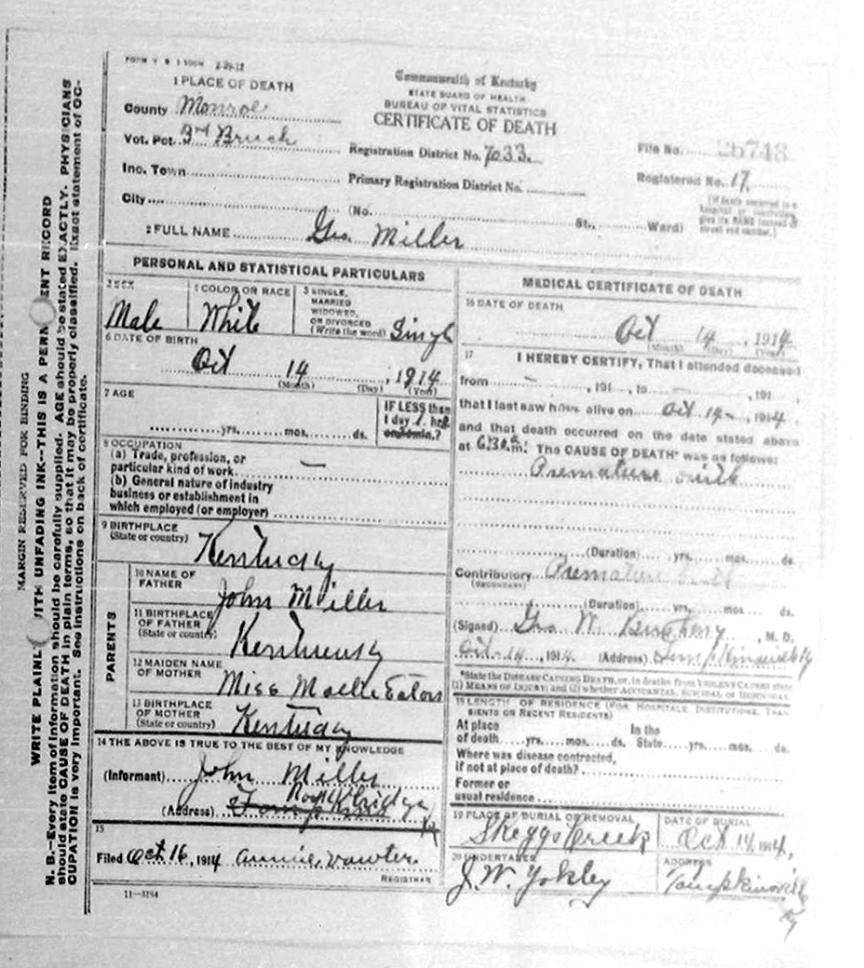 FORM V S 1 500M 2-29-12
Commonwealth of Kentucky
STATE BOARD OF HEALTH
BUREAU OF VITAL STATISTICS
CERTIFICATE OF DEATH
1 PLACE OF DEATH
County Monroe
Vot. Pct. 3rd
Inc. Town
City
Registration District No. 7033.
Primary Registration District No.
(No. St., Ward)
File No. 25743
Registered No. 17.
[If death occurred in a hospital or institution, give its NAME instead of street and number.]
2 FULL NAME Geo Miller
PERSONAL AND STATISTICAL PARTICULARS
3 SEX
Male
4 COLOR OR RACE
White
5 SINGLE, MARRIED WIDOWED, OR DIVORCED (Write the word) Single
6 DATE OF BIRTH
Oct 14, 1914
(Month) (Day) (Year)
7 AGE
yrs. mos. ds.
IF LESS than 1 day 1 hrs or min.?
8 OCCUPATION
(a) Trade, profession, or
particular kind of work —
(b) General nature of industry
business or establishment in
which employed (or employer)
9 BIRTHPLACE
(State or country) Kentucky
PARENTS
10 NAME OF
FATHER John Miller
11 BIRTHPLACE
OF FATHER
(State or country) Kentucky
12 MAIDEN NAME
OF MOTHER Miss Mollie Eaton
13 BIRTHPLACE
OF MOTHER
(State or country) Kentucky
14 THE ABOVE IS TRUE TO THE BEST OF MY KNOWLEDGE
(Informant) John Miller
(Address) Ky
15
Filed Oct 16, 1914 Annie Vawter
REGISTRAR
11-3184
MEDICAL CERTIFICATE OF DEATH
16 DATE OF DEATH
Oct 14, 1914
(Month) (Day) (Year)
17 I HEREBY CERTIFY, That I attended deceased
from —, 191 , to —, 191 ,
that I last saw h alive on Oct 14-, 1914.
and that death occurred on the date stated above
at 6.30 a m. The CAUSE OF DEATH* was as follows:
Premature birth
(Duration) yrs. mos. ds.
Contributory Premature birth
(SECONDARY)
(Duration) yrs. mos. ds.
(Signed) Geo W. , M. D.
Oct-14, 1914 (Address) Tompkinsville Ky
*State the DISEASE CAUSING DEATH, or, in deaths from VIOLENT CAUSES state
(1) MEANS OF INJURY; and (2) whether ACCIDENTAL, SUICIDAL or HOMICIDAL
18 LENGTH OF RESIDENCE (FOR HOSPITALS, INSTITUTIONS, TRANSIENTS OR RECENT RESIDENTS)
At place of death yrs. mos. ds. In the State yrs. mos. ds.
Where was disease contracted,
if not at place of death?
Former or
usual residence
19 PLACE OF BURIAL OR REMOVAL
Skeggs Creek
DATE OF BURIAL
Oct 14, 1914,
20 UNDERTAKER
J. W. Yokley
ADDRESS
Tompkinsville
Ky
MARGIN RESERVED FOR BINDING
WRITE PLAINLY WITH UNFADING INK--THIS IS A PERMANENT RECORD
N. B.—Every item of information should be carefully supplied. AGE should be stated EXACTLY. PHYSICIANS
should state CAUSE OF DEATH in plain terms, so that it may be properly classified. Exact statement of OC-
CUPATION is very important. See instructions on back of certificate.